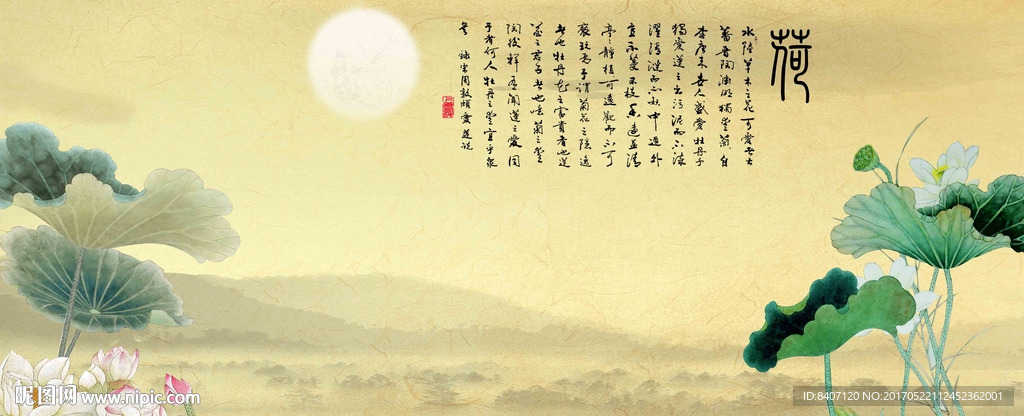 荷
水陸草木之花可愛者甚
蕃晉陶淵明獨愛菊自
李唐來世人盛愛牡丹予
獨愛蓮之出污泥而不染
濯清漣而不妖中通外
直不蔓不枝香遠益清
亭亭靜植可遠觀而不可
褻玩焉予謂菊花之隱逸
者也牡丹花之富貴者也蓮
花之君子者也噫菊之愛
陶後鮮有聞蓮之愛同
予者何人牡丹之愛宜乎眾
矣 錄宋周敦頤愛蓮說
昵图网 www.nipic.com
ID:8407120 NO:20170522112452362001